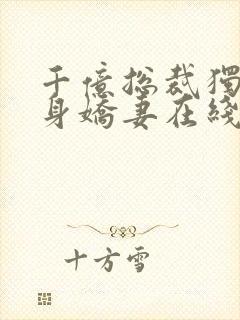 千億總裁獨
身嬌妻在綫
十方雪